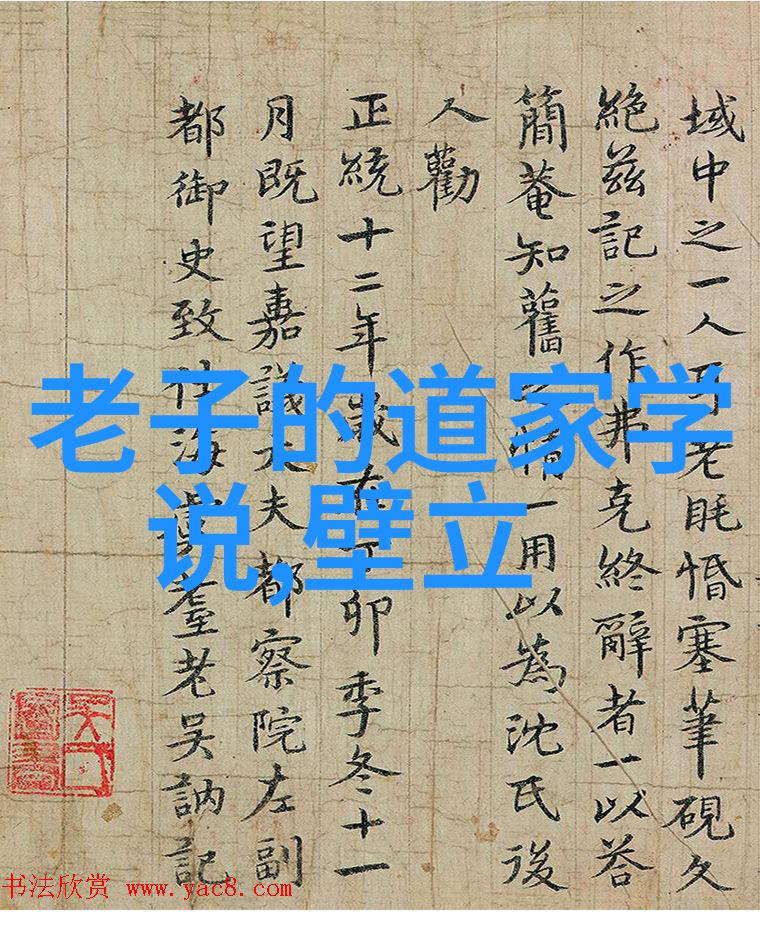 域中之一人耳老眊惛塞筆硯久
絶兹記之作弗克終辭者一以荅
簡菴知舊之情一用以為沈氏後
人勸
正統十二年歲在丁卯季冬十一
月既望嘉議大夫都察院左副
都御史致仕海虞耋老吳訥記
老子的道家学
说,壁立
书法欣赏 www.yac8.com